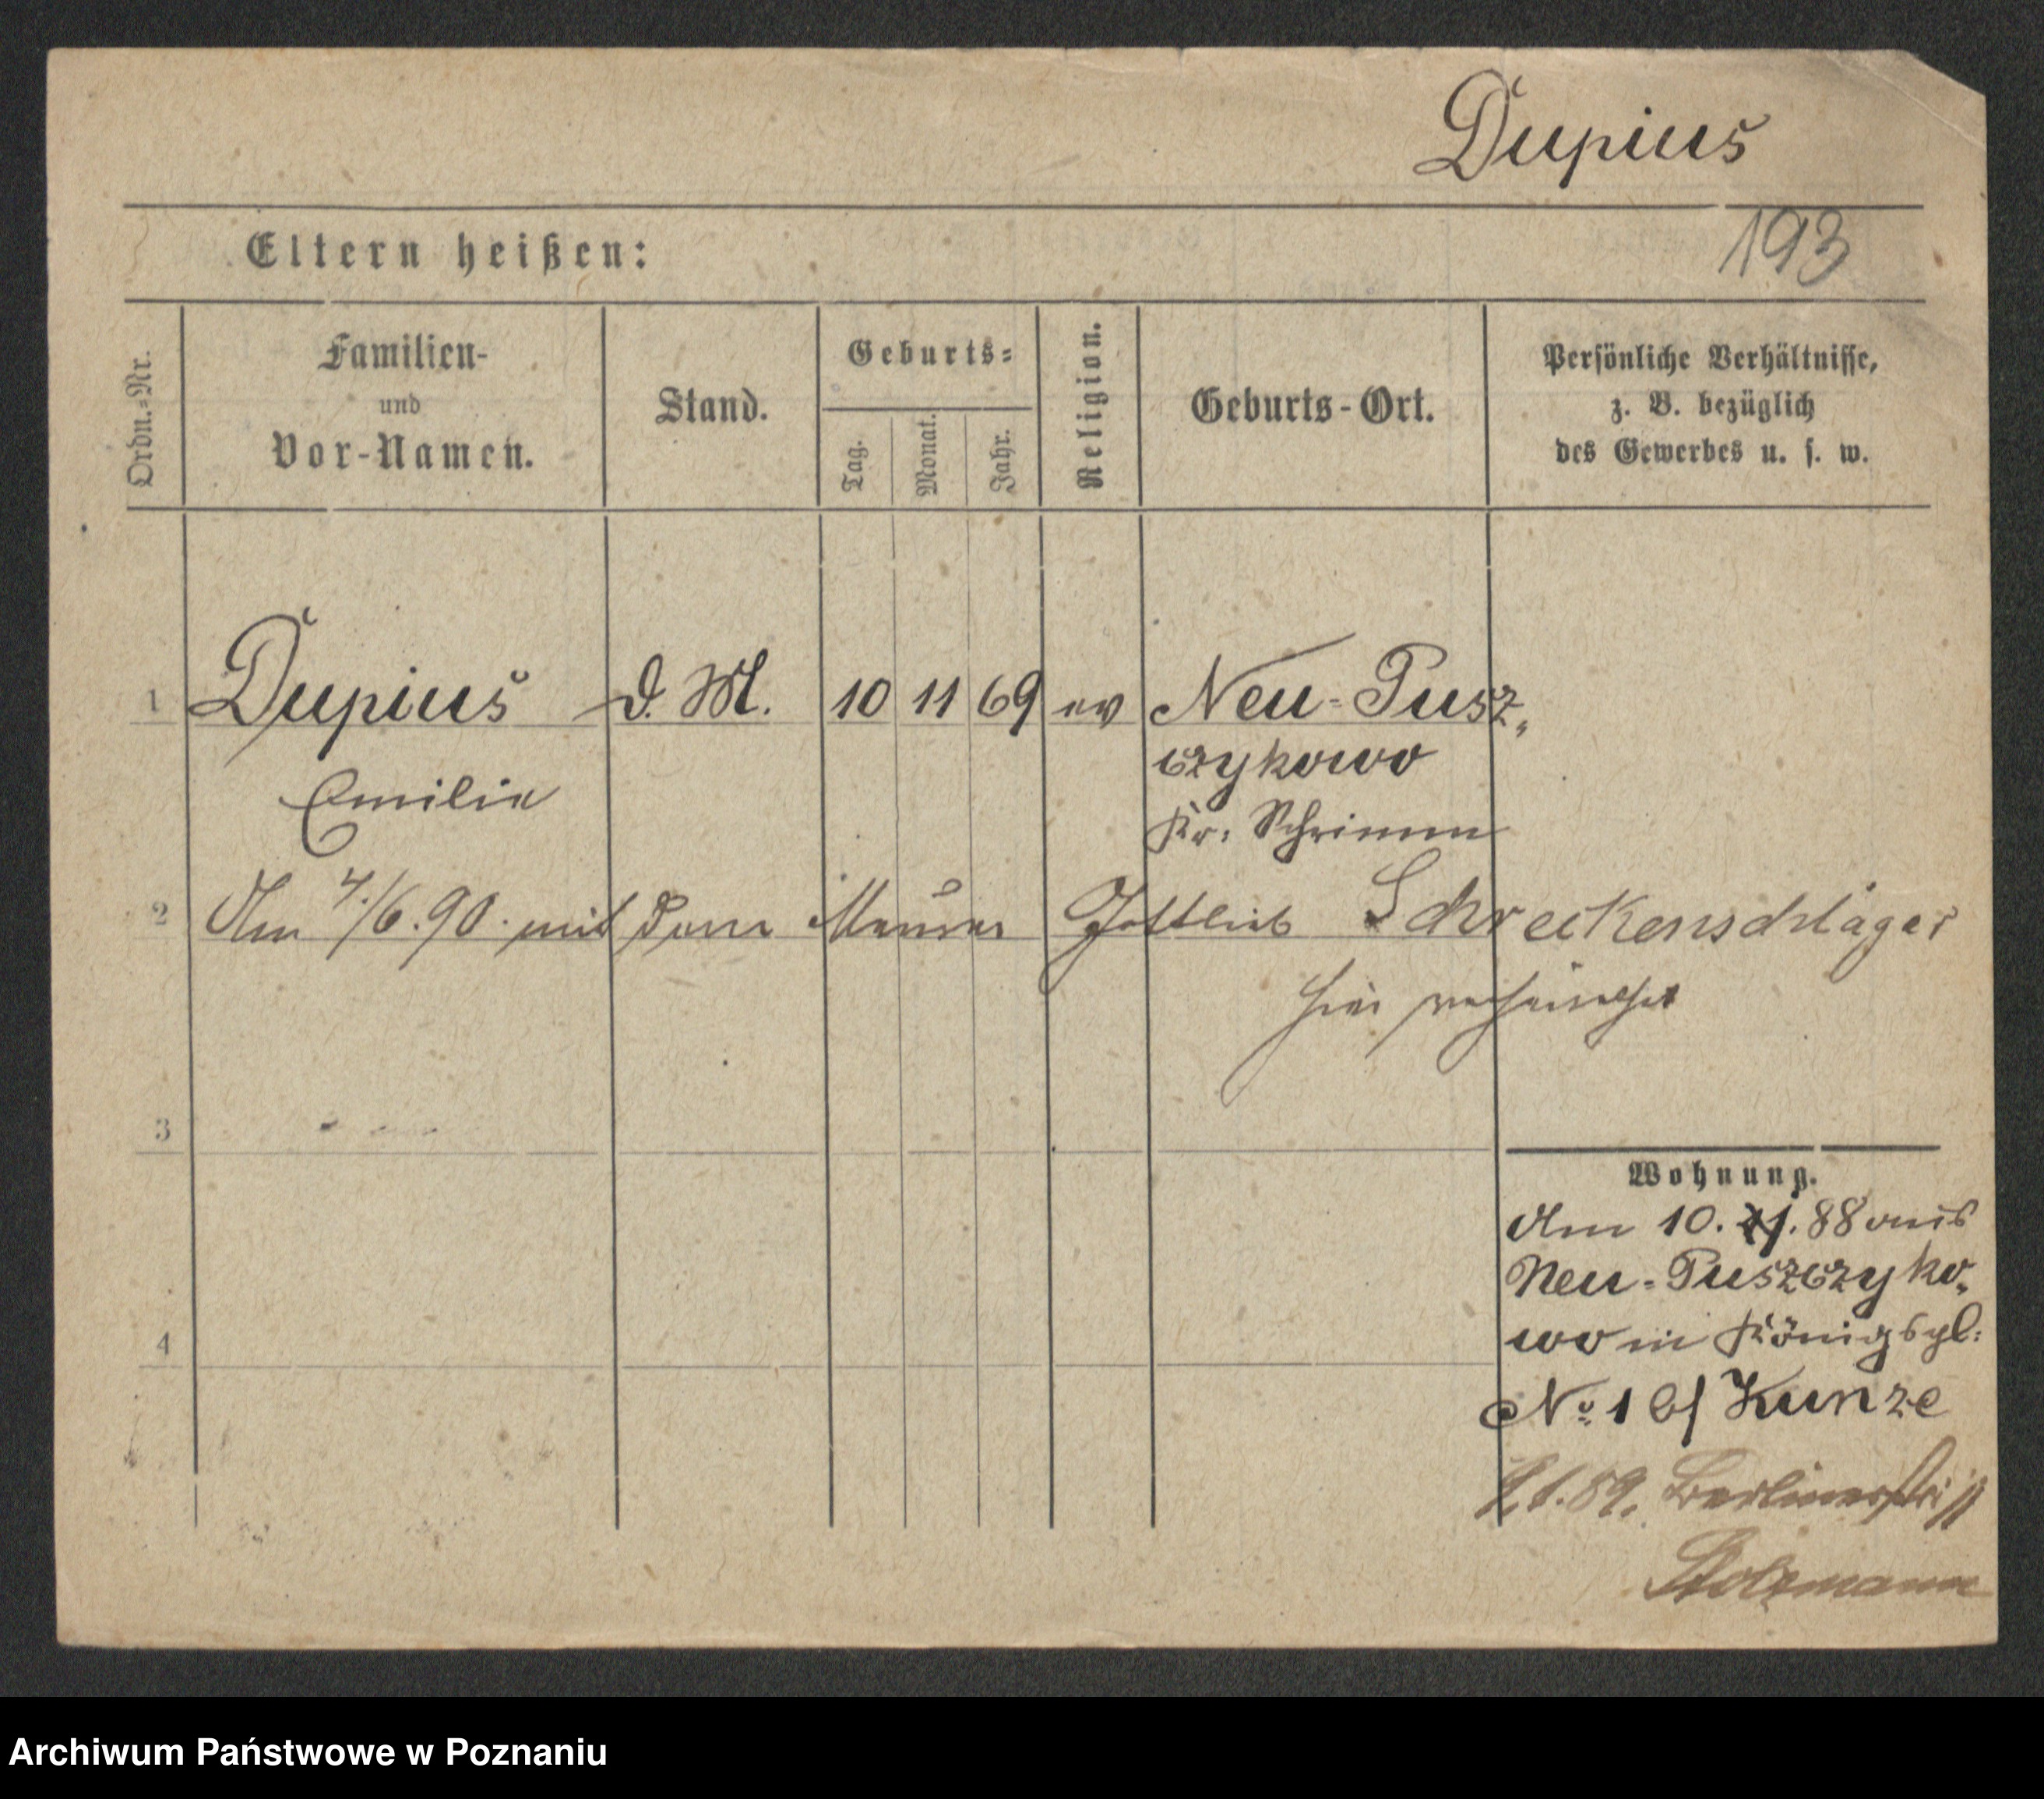 Dupius
193
Eltern heißen:
Ordn.-Nr.
Familien-
und
Vor-Namen.
Stand.
Geburts-
Tag.
Monat.
Jahr.
Religion.
Geburts-Ort.
Persönliche Verhältnisse,
z. B. bezüglich
des Gewerbes u. s. w.
1 Dupius d. M. 10 11 69 ev Neu-Pusz-
czykowo
Emilie
Kr. Schrimm
2 Am 7./6.90. mit dem Maurer Gottlieb Schreckenschläger
hier verheirathet
3
Wohnung.
Am 10. 88 aus
Neu-Puszczyko-
wo in Königspl:
No 1 b/ Kunze
4
1.89. Berlinerstr:
Stolzmann
Archiwum Państwowe w Poznaniu